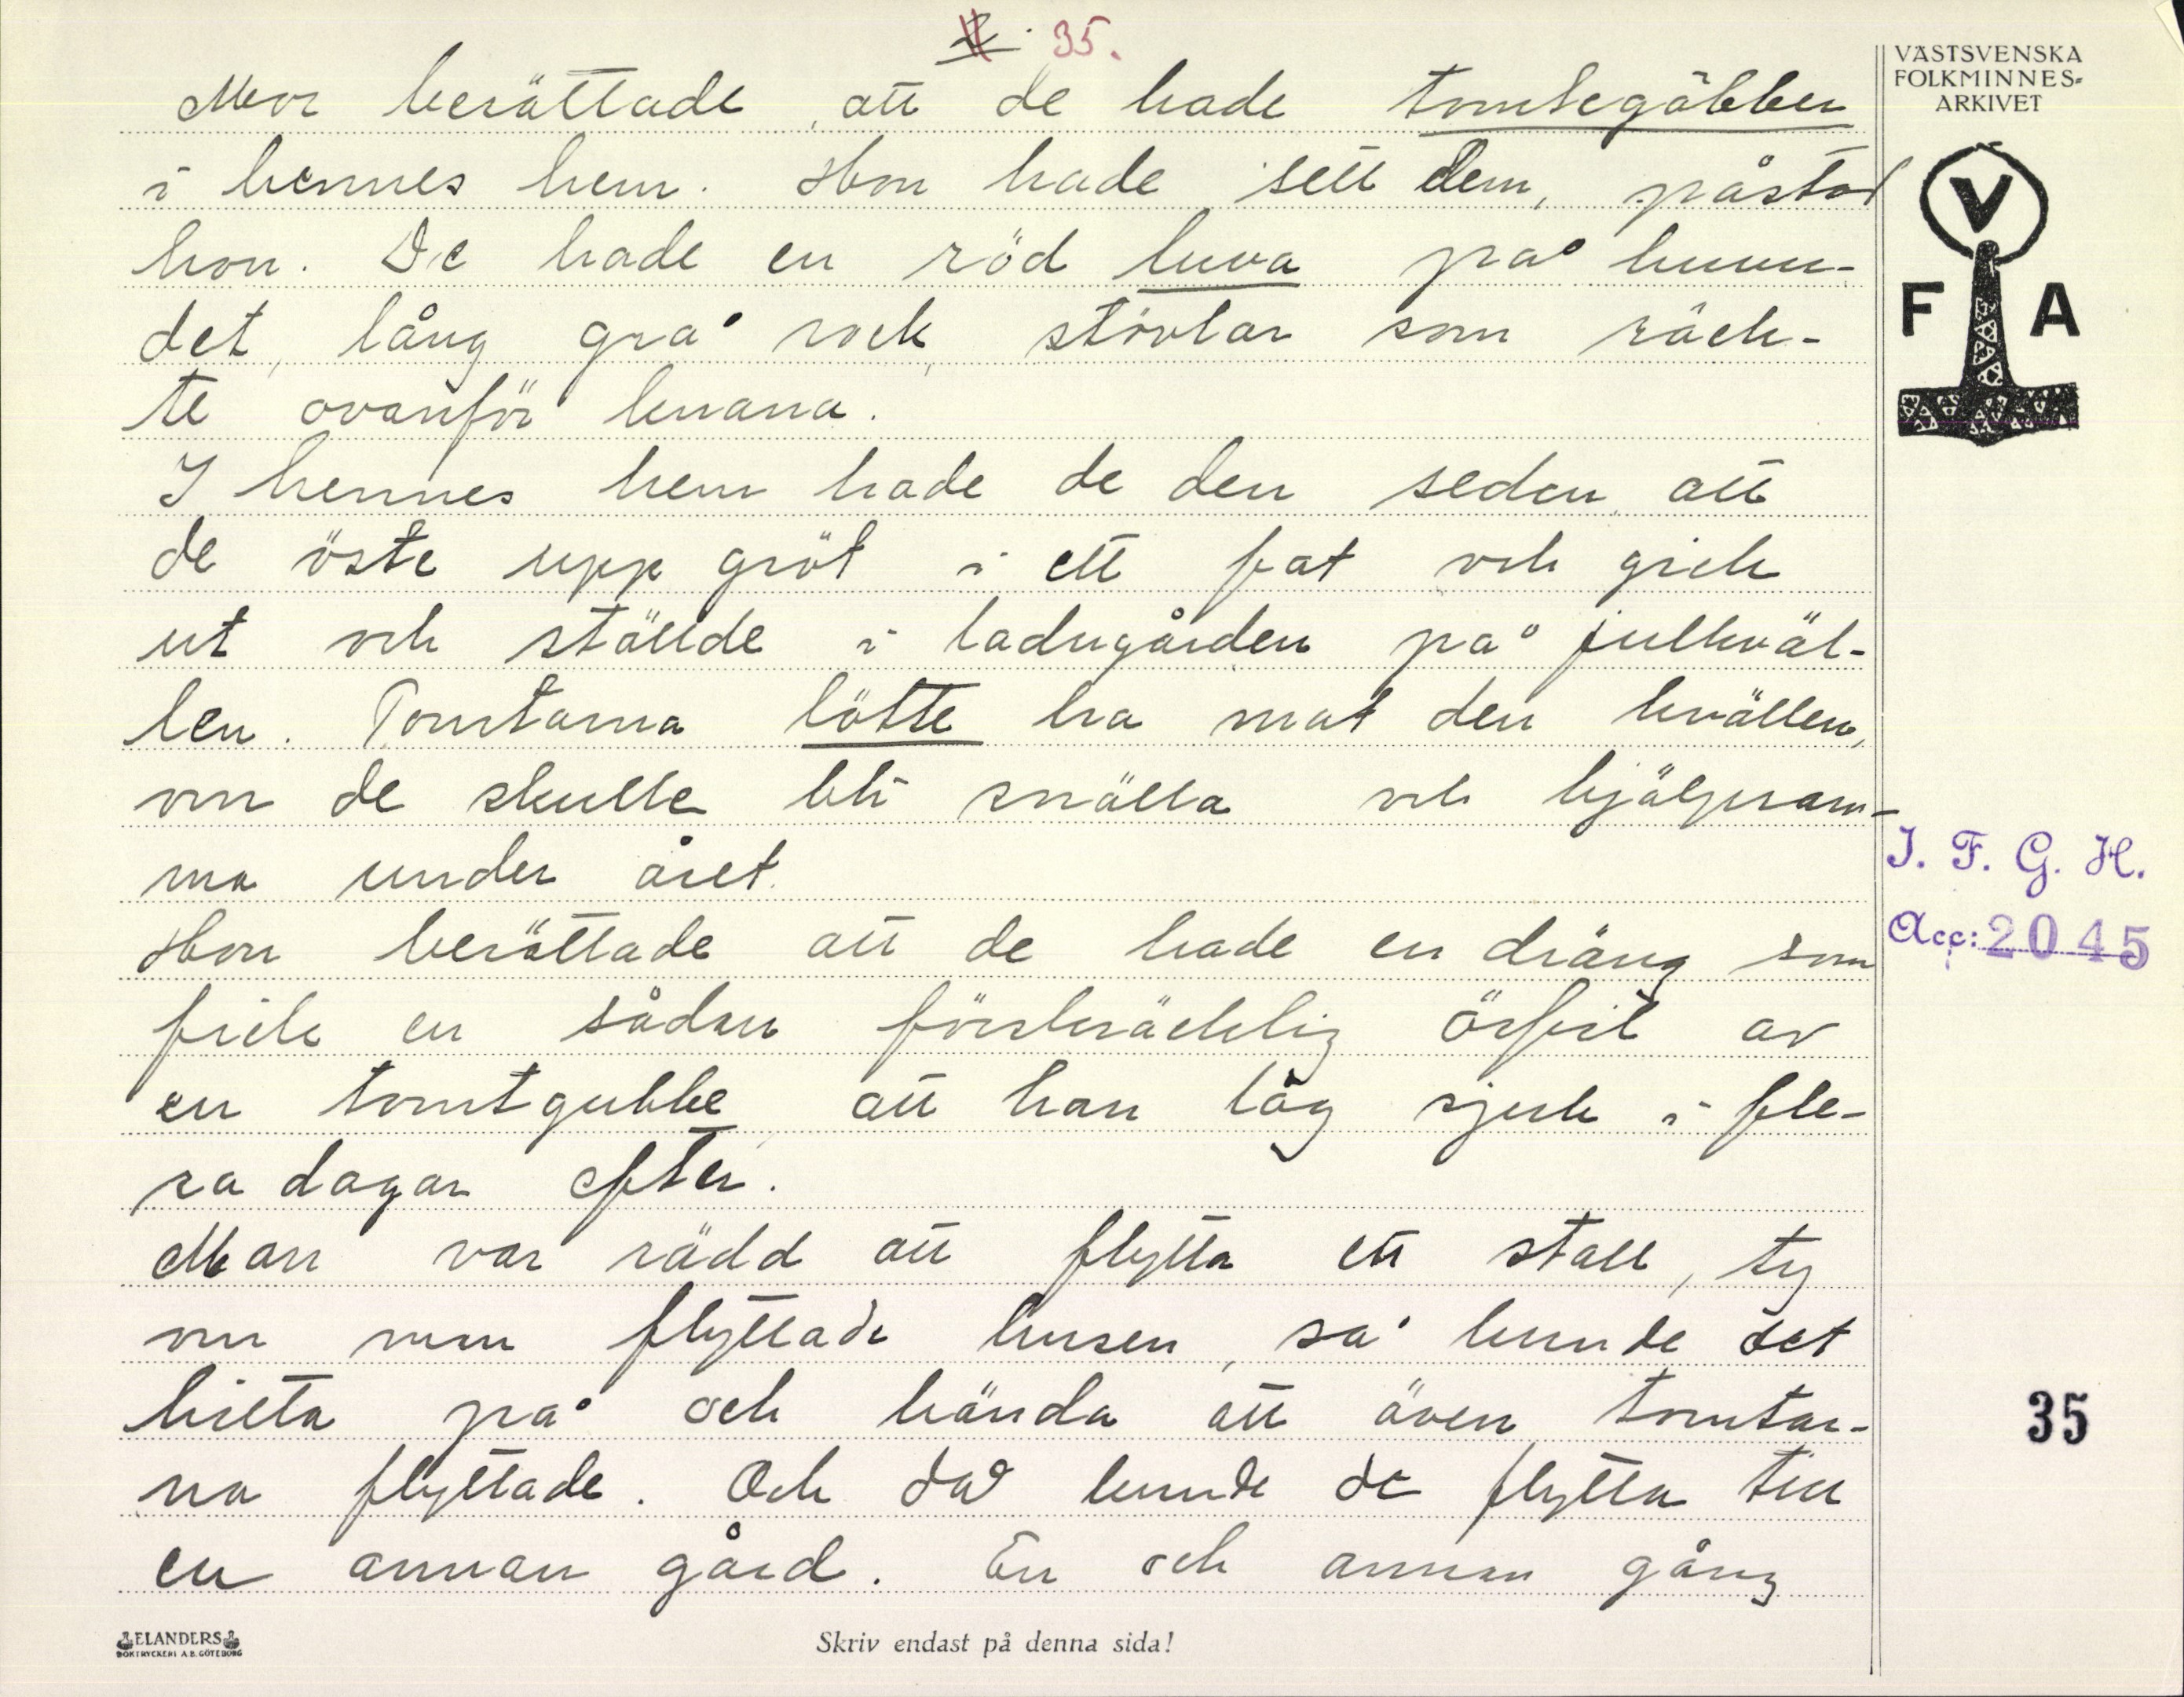 35.
Mor berättade, att de hade tomtegöbber
i hennes hem. Hon hade sett dem, påstod
hon. De hade en röd luva på huvu-
det, lång grå rock, stövlar som räck-
te ovanför knäna.
I hennes hem hade de den seden, att
de öste upp gröt i ett fat och gick
ut och ställde i ladugården på julkväl-
len. Tomtarna lötte ha mat den kvällen,
om de skulle bli snälla och hjälpsam-
ma under året.
Hon berättade att de hade en dräng som
fick en sådan förskräcklig örfil av
en tomtgubbe, att han låg sjuk i fle-
ra dagar efter.
Man var rädd att flytta ett stall, ty
om man flyttade husen, så kunde det
hitta på och hända att även tomtar-
na flyttade. Och då kunde de flytta till
en annan gård. En och annan gång
VÄSTSVENSKA
FOLKMINNES-
ARKIVET
V
F A
I. F. G. H.
Acc: 2045
35
ELANDERS
BOKTRYCKERI A.B. GÖTEBORG
Skriv endast på denna sida!